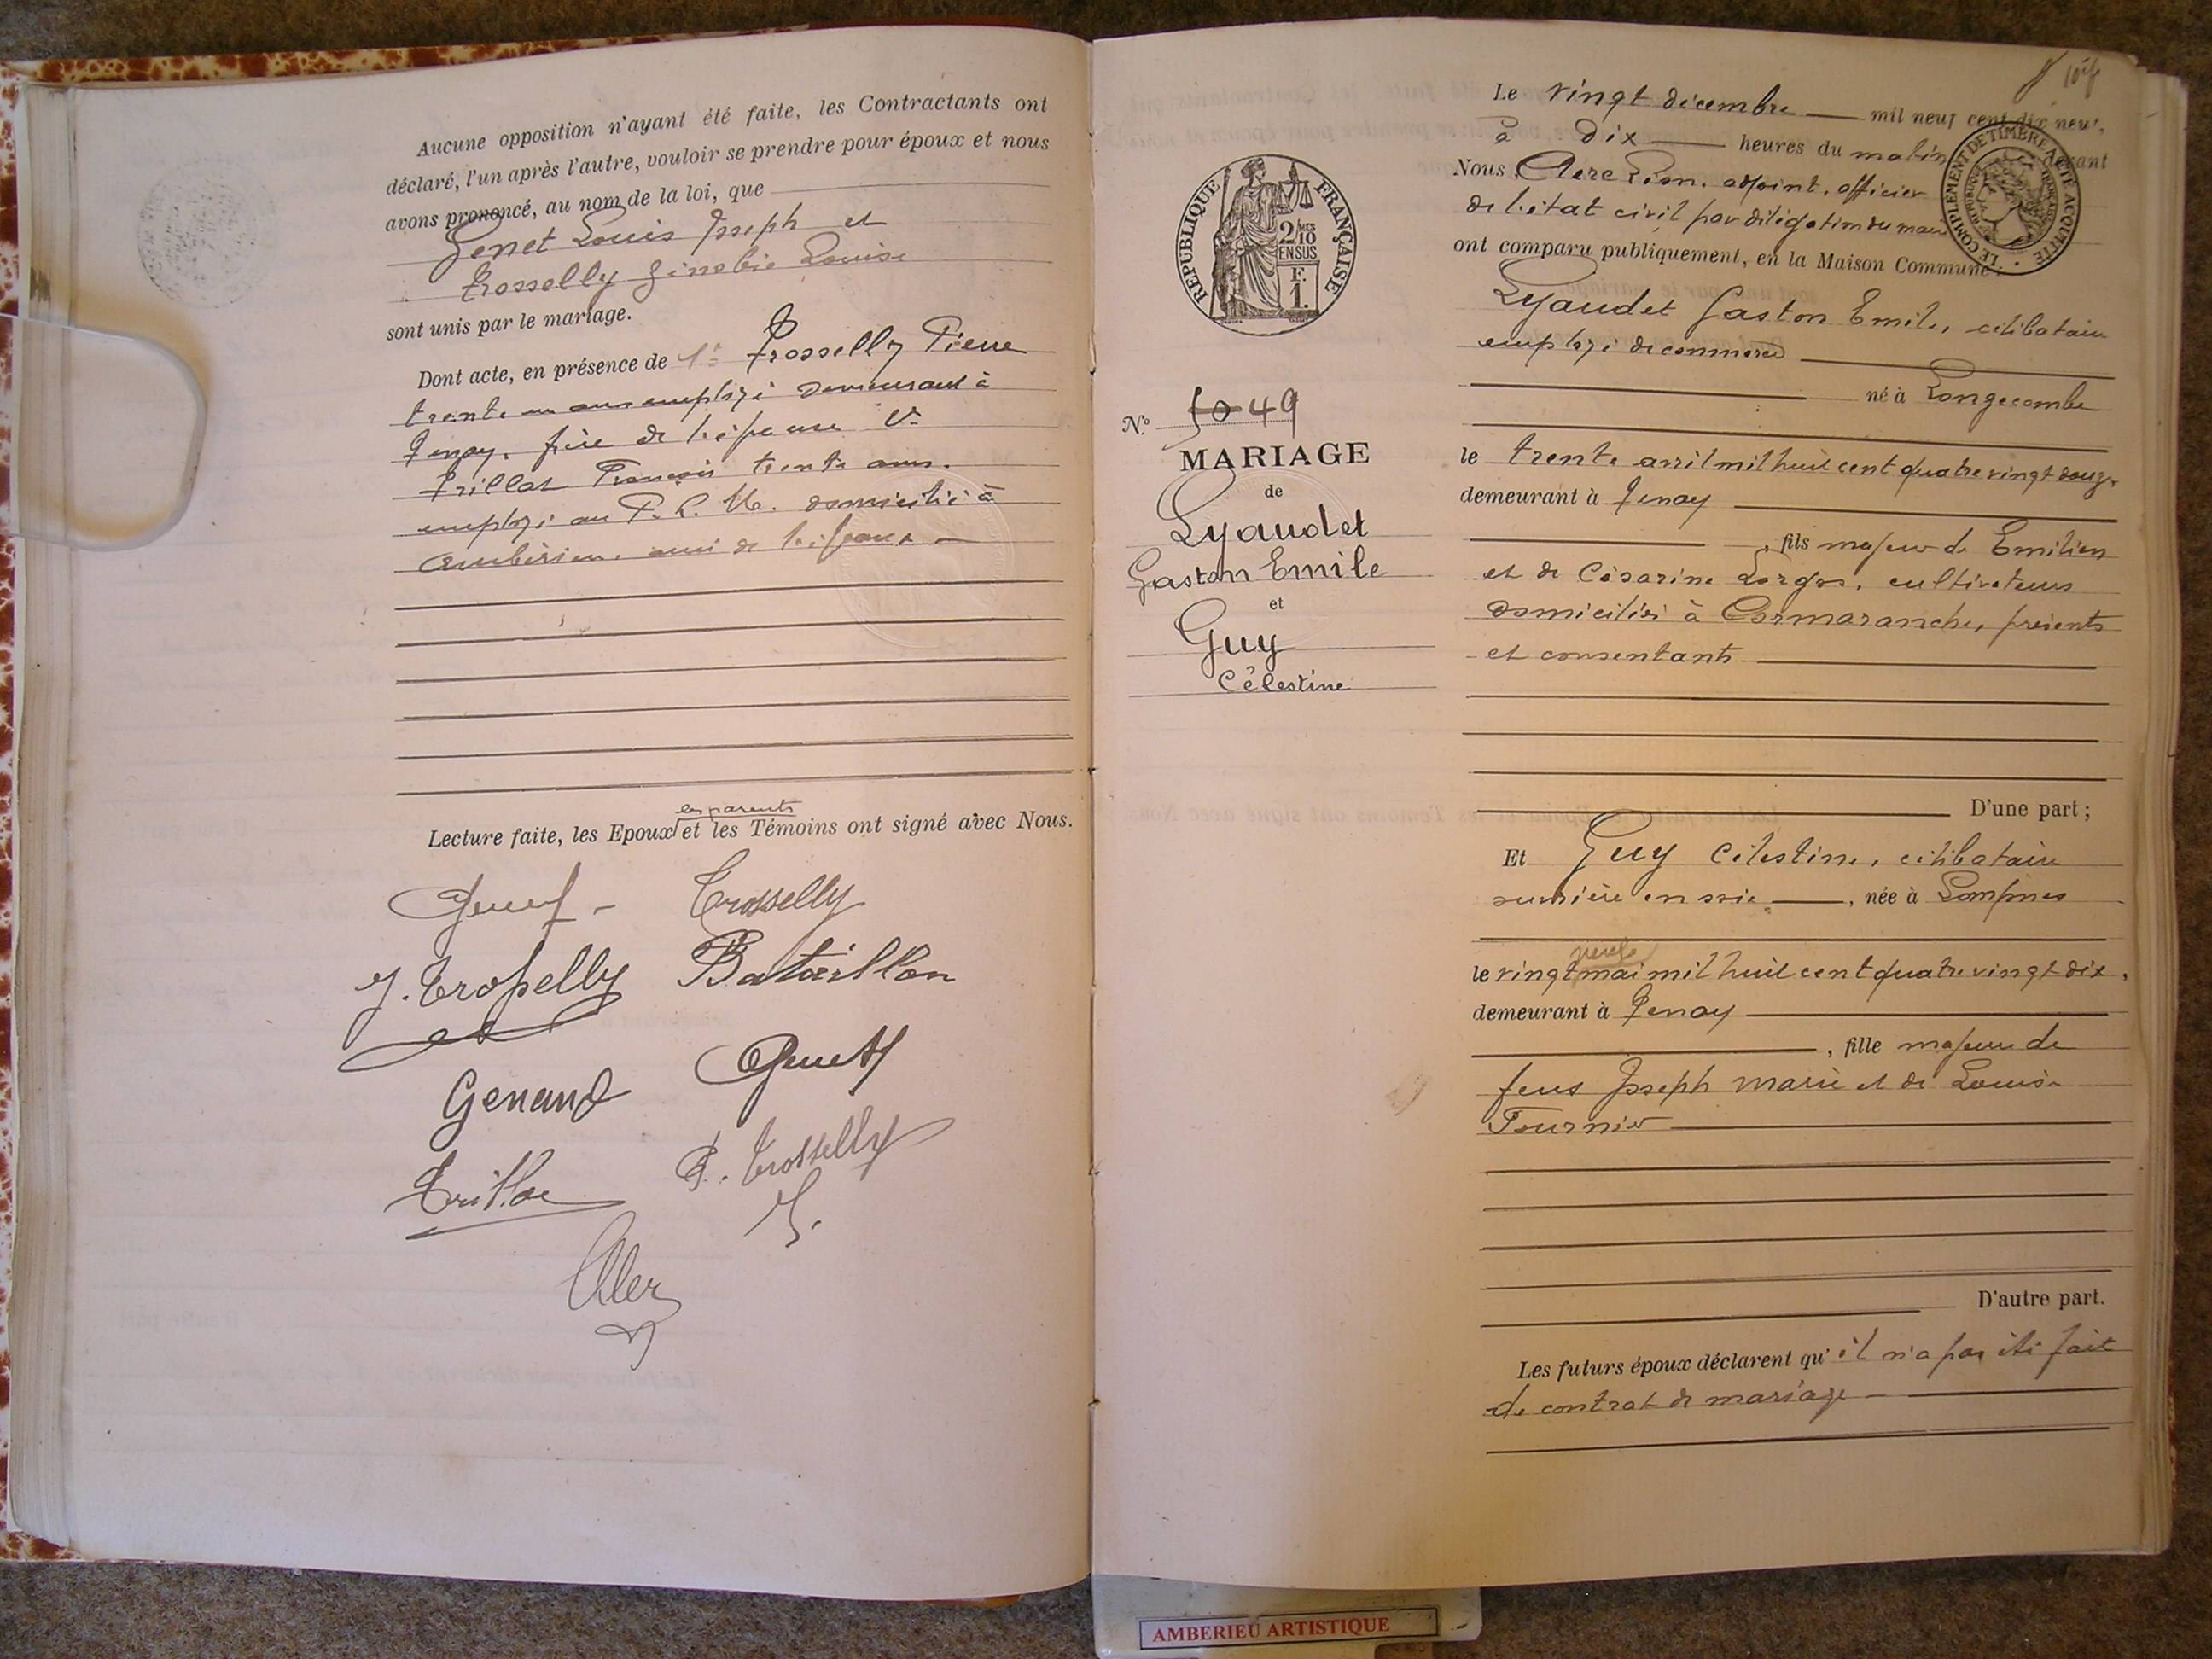 Aucune opposition n'ayant été faite, les Contractants ont
déclaré, l'un après l'autre, vouloir se prendre pour époux et nous
avons prononcé, au nom de la loi, que
Genet Louis Joseph et
Trosselly Zénobie Louise
sont unis par le mariage.
Dont acte, en présence de 1º Trosselly Pierre
trente un ans employé demeurant à
Tenay, frère de l'épouse 2º
Trillat François trente ans.
employé au P. L. M. domicilié à
Ambérieu, ami de l'épouse
les parents
Lecture faite, les Epoux et les Témoins ont signé avec Nous.
Genet Trosselly
J. Trosselly Bataillon
Genand Genet
Trillat P. Trosselly
Clerc
Le vingt décembre mil neuf cent dix neuf,
à dix heures du matin devant
Nous, Clerc Léon, adjoint, officier
de l'état civil par délégation du maire
ont comparu publiquement, en la Maison Commune :
LE COMPLEMENT DE TIMBRE A ETE ACQUITTE
REPUBLIQUE FRANÇAISE
2/10 MES
EN SUS
F.
1.
Lyaudet Gaston Emile, célibataire
employé de commerce
né à Longecombe
le trente avril mil huit cent quatre vingt douze
demeurant à Tenay
, fils majeur de Emilien
et de Césarine
, cultivateurs
domiciliés à Cormaranche, présents
et consentants
D'une part ;
Nº 50 49
MARIAGE
de
Lyaudet
Gaston Emile
et
Guy
Célestine
Et Guy Célestine, célibataire
ouvrière en soie, née à Lompnes
neuf
le vingt mai mil huit cent quatre vingt dix,
demeurant à Tenay
, fille majeure de
feus Joseph Marie et de Louise
Fournier
D'autre part.
Les futurs époux déclarent qu'il n'a pas été fait
de contrat de mariage
AMBERIEU ARTISTIQUE